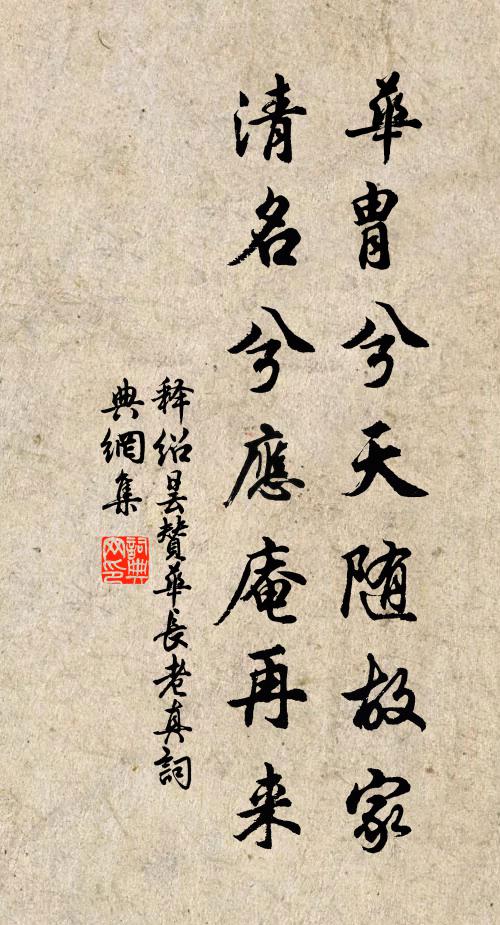 華胄兮天随故家
清名兮應庵再来
释绍昙赞華長老真詞
典網集
詞典
网印